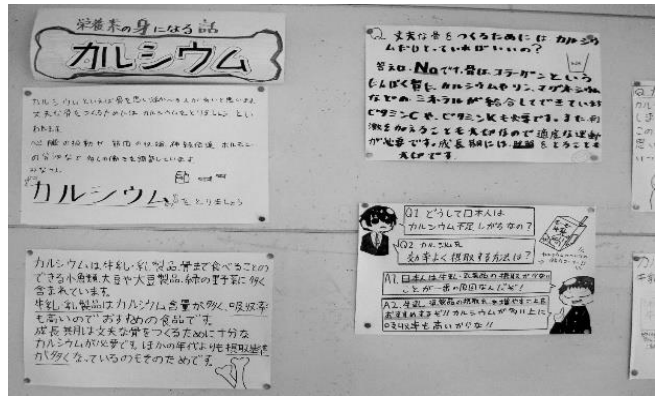 栄養素の身になる話
カルシウム
カルシウムといえば骨を思い浮かべる人が多いと思います。
丈夫な骨をつくるためにはカルシウムをとりましょうとい
われます。
心臓の拍動や 筋肉の収縮、神経伝達、ホルモン
の分泌など
みなさん
カルシウム をとりましょう
カルシウムは、牛乳・乳製品、骨まで食べることの
できる小魚類、大豆や大豆製品、緑の野菜に多く
含まれています。
牛乳・乳製品はカルシウム含量が多く、吸収率
も高いのでおすすめの食品です。
成長期は丈夫な骨をつくるために十分な
カルシウムが必要です。ほかの年代よりも摂取基準
が多くなっているのもそのためです。
Q. 丈夫な骨をつくるためには カルシウ
ムだけとっていればいいの?
答えは、Noです。骨は、コラーゲンという
たんぱく質に、カルシウムやリン、マグネシウム
などの ミネラルが結合してできています
ビタミンCや、ビタミンKも大事です。また、刺
激を加えることも大切なので適度な運動
が必要です。成長期には、睡眠をとることも
大切です。
Q1 どうして日本人は
カルシウム不足しがちなの?
Q2 カルシウムを
効率よく摂取する方法は?
牛乳
A1. 日本人は牛乳・乳製品の摂取が少ない
ことが一番の原因なんだぞ!
A2. 牛乳、乳製品の摂取を増やすことを
おすすめするぞ!!カルシウムが多い上に
吸収率も高いからな!!